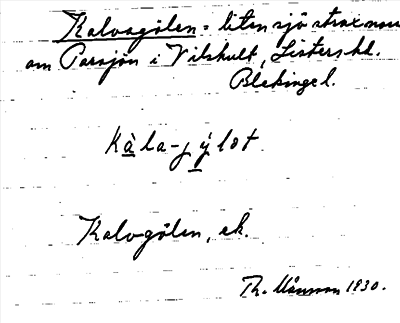 Kalvagölen = liten sjö strax norr
om Parsjön i Vilshult, Listers hd.
Blekinge l.
Kàla-jýlət
Kalvgölen, ek.
Th. Månsson 1930.